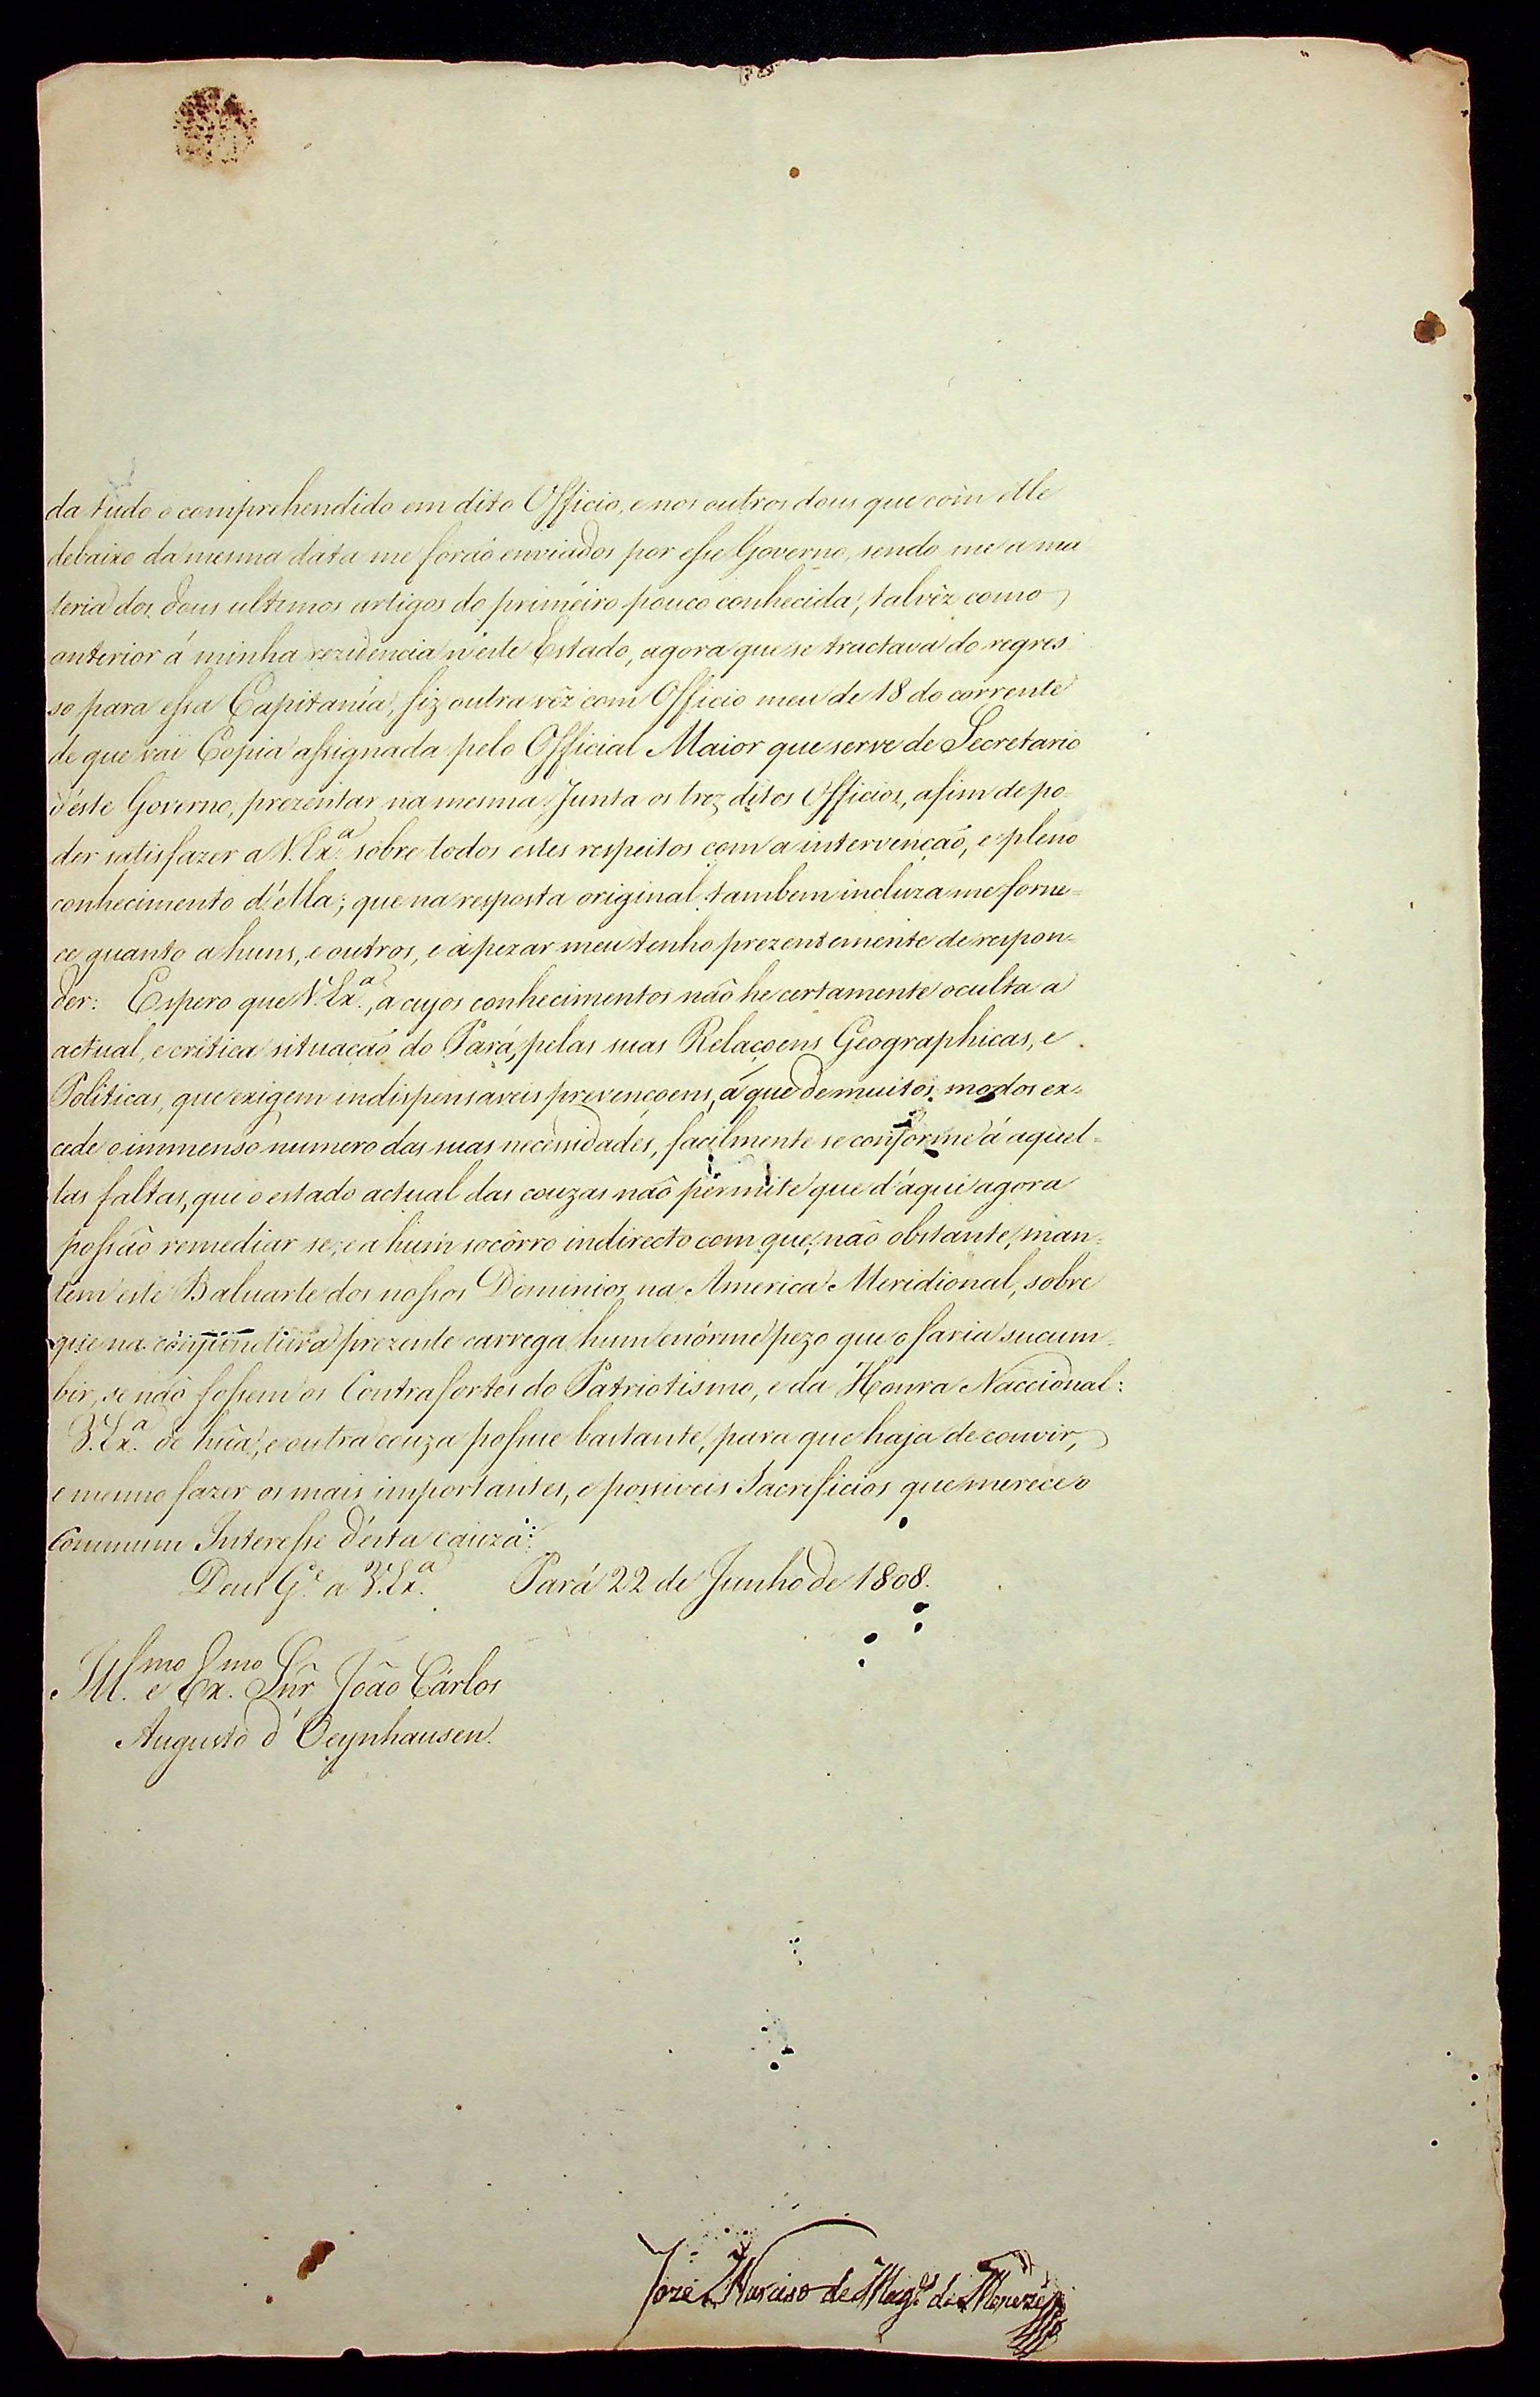 da tudo o comprehendido em dito Officio, e nos outros dous que com elle
debaixo da mesma data me forão enviados por esse Governo, sendo me a ma
teria dos dous ultimos artigos do primeiro pouco conhecida, talvêz como
anterior á minha rezidencia n'este Estado, agora que se tractava do regres
so para essa Capitanía, fiz outra vêz com Officio meu de 18 do corrente
de que vai Copia assignada pelo Official Maior que serve de Secretario
d'este Governo, prezentar na mesma Junta os trez ditos Officios, afim de po-
der satisfazer a V. Ex.ª sobre todos estes respeitos com a intervenção, e pleno
conhecimento d'ella; que na resposta original tambem incluza me forne=
ce quanto a huns, e outros, e a pezar meu tenho prezentemente de respon=
der: Espero que V. Ex.ª, a cujos conhecimentos não he certamente oculta a
actual, e critica situação do Pará, pelas suas Relaçoens Geographicas, e
Politicas, que exigem indispensaveis prevençoens, á que de muitos modos ex=
cede o immenso numero das suas necessidades, facilmente se conforme á aquel=
las faltas, que o estado actual das couzas não permite que d'aqui agora
possão remediar se, e a hum socôrro indirecto com que, não obstante, man=
tem este Baluarte dos nossos Dominios na America Meridional, sobre
que na conjunctura prezente carrega hum enórme pezo que o faria sucum
bir, se não fossem os Contrafortes do Patriotismo, e da Honra Naccional:
V. Ex.ª de hũa, e outra couza possue bastante, para que haja de convir,
e mesmo fazer os mais importantes, e possiveis Sacrificios que merece o
Commum Interesse d'esta cauza:
Deus G.e a V. Ex.ª Pará 22 de Junho de 1808.
Ill.mo e Ex.mo Snr João Cárlos
Augusto d'Oeynhausen.
Jozé Narciso de Mag.es de Menezes